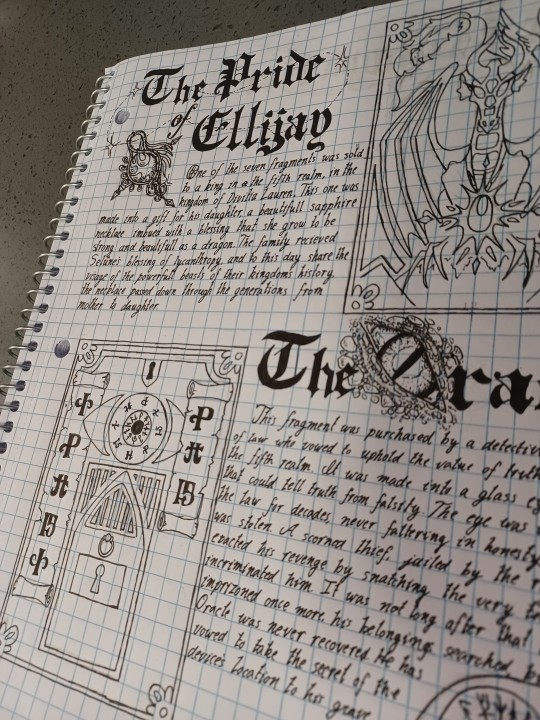 The Pride
of
Ellijay
One of the seven fragments was sold
to a king in a the fifth realm, in the
kingdom of Lauren. This one was
made into a gift for his daughter, a beautifull sapphire
necklace imbued with a blessing that she grow to be
strong and beautifull as a dragon. The family recieved
Selune's blessing of lycanthropy, and to this day share the
visage of the powerfull beasts of their kingdoms history,
the necklace passed down through the generations from
mother to daughter.
The Ora
This fragment was purchased by a detectiv
of law who vowed to uphold the value of truth
the fifth realm. It was made into a glass ey
that could tell truth from falsity. The eye was
the law for decades, never faltering in honesty
was stolen. A scorned thief, jailed by the
exacted his revenge by snatching the very
incriminated him. It was not long after that
imprizoned once more, his belongings searched, b
Oracle was never recovered. He has
vowed to take the secret of the
devices location to his grave